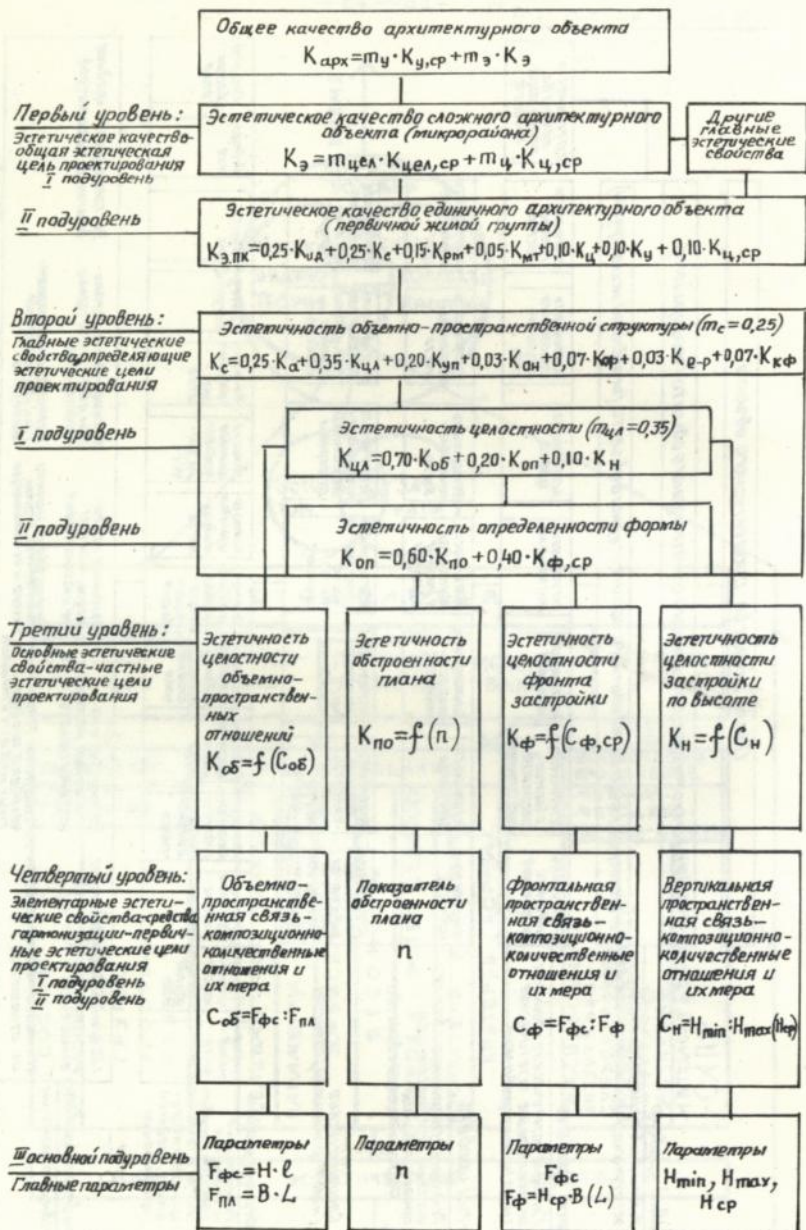 Общее качество архитектурного объекта
Kарх=mу·Kу,ср+mэ·Kэ
Первый уровень:
Эстетическое качество-
общая эстетическая
цель проектирования
I подуровень
Эстетическое качество сложного архитектурного
объекта (микрорайона)
Kэ=mцел·Kцел,ср+mц·Kц,ср
Другие
главные
эстетические
свойства
II подуровень
Эстетическое качество единичного архитектурного объекта
(первичной жилой группы)
Kэ.пк=0,25·Kид+0,25·Kс+0,15·Kрт+0,05·Kмт+0,10·Kц+0,10·Kу+0,10·Kц,ср
Второй уровень:
Главные эстетические
свойства, определяющие
эстетические цели
проектирования
Эстетичность объемно-пространственной структуры (mс=0,25)
Kс=0,25·Kа+0,35·Kцл+0,20·Kуп+0,03·Kан+0,07·Kфр+0,03·Kе-р+0,07·Kкф
I подуровень
Эстетичность целостности (mцл=0,35)
Kцл=0,70·Kоб+0,20·Kоп+0,10·KН
II подуровень
Эстетичность определенности формы
Kоп=0,60·Kпо+0,40·Kф,ср
Третий уровень:
Основные эстетические
свойства-частные
эстетические цели
проектирования
Эстетичность
целостности
объемно-
пространствен-
ных
отношений
Kоб=f(Cоб)
Эстетичность
обстроенности
плана
Kпо=f(п)
Эстетичность
целостности
фронта
застройки
Kф=f(Cф,ср)
Эстетичность
целостности
застройки
по высоте
KН=f(CН)
Четвертый уровень:
Элементарные эстети-
ческие свойства-средства
гармонизации-первич-
ные эстетические цели
проектирования
I подуровень
II подуровень
Объемно-
пространствен-
ная связь-
композиционно-
количественные
отношения и
их мера
Cоб=Fфс:Fпл
Показатель
обстроенности
плана
п
Фронтальная
пространствен-
ная связь-
композиционно-
количественные
отношения и
их мера
Cф=Fфс:Fф
Вертикальная
пространствен-
ная связь-
композиционно-
количественные
отношения и
их мера
CН=Hmin:Hmax(Hср)
III основной подуровень
Главные параметры
Параметры
Fфс=H·ℓ
Fпл=B·L
Параметры
п
Параметры
Fфс
Fф=Hср·B(L)
Параметры
Hmin, Hmax,
Hср